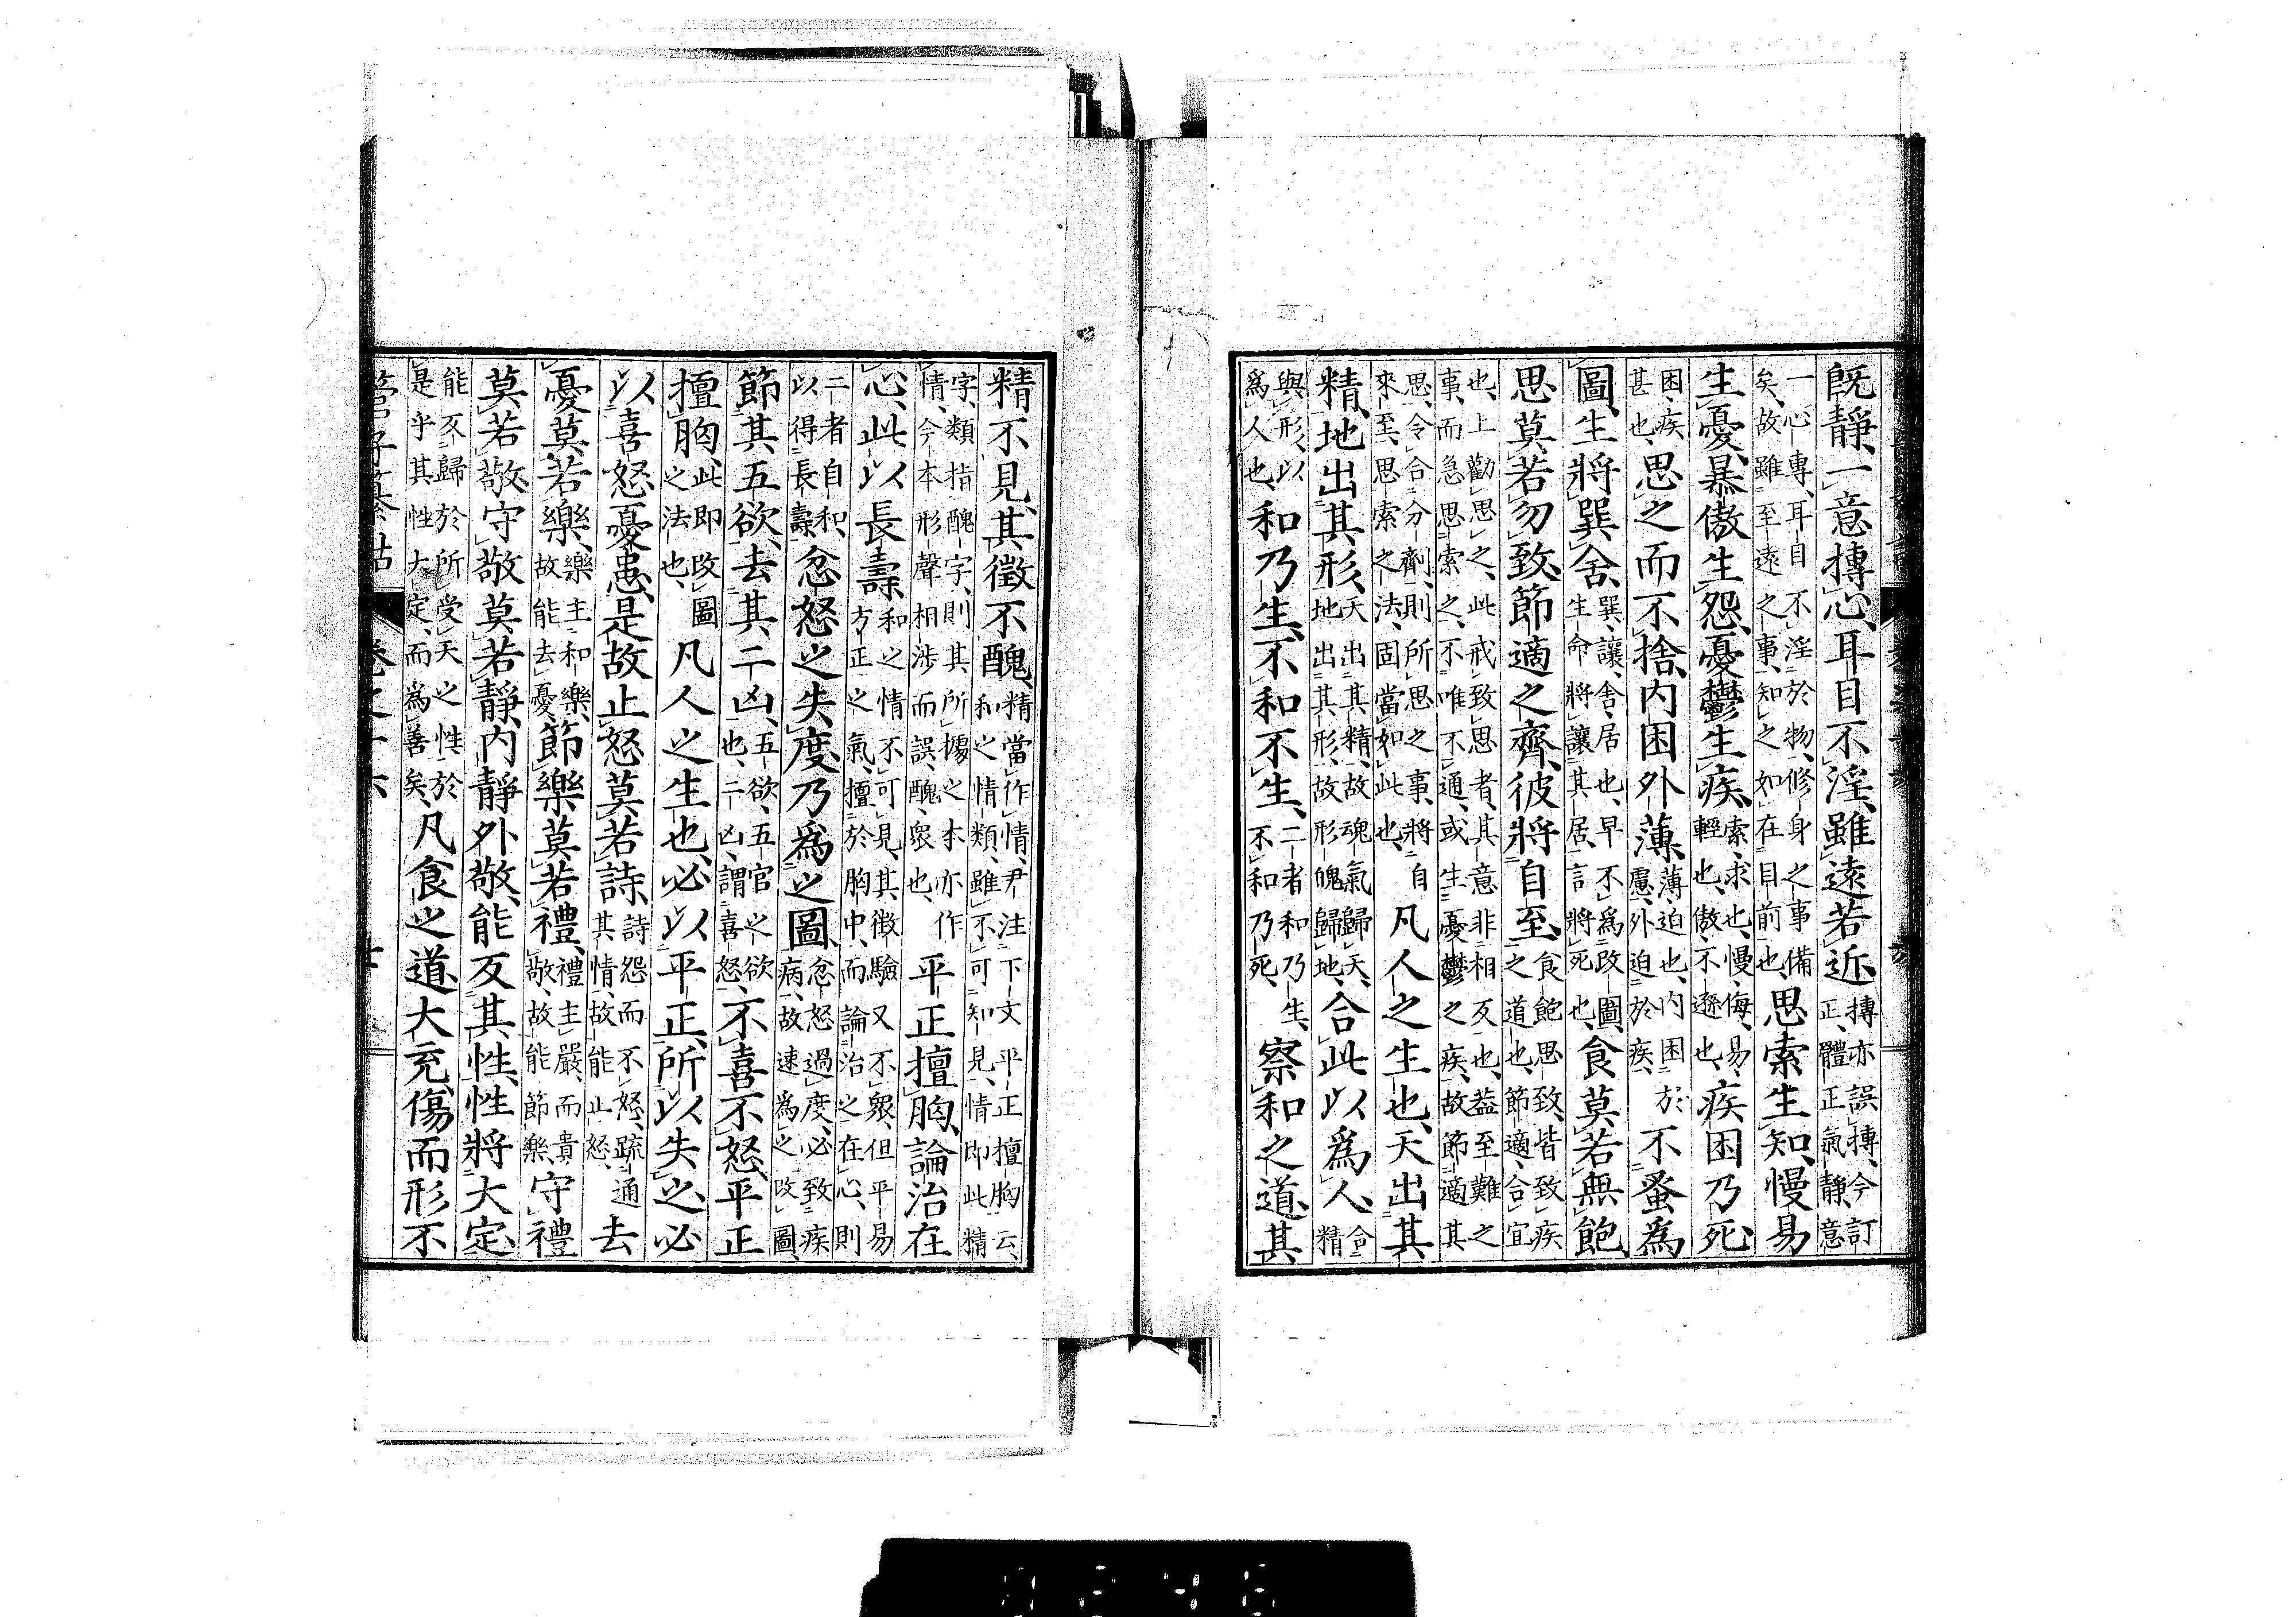 既靜、一意摶心、耳目不淫、雖遠若近、摶亦誤搏、今訂正、體正氣靜、意
一心專、耳目不淫於物、修身之事備矣、故雖至遠之事、知之如在目前也、思索生知、慢易
生憂、暴傲生怨、憂鬱生疾、索、求也、慢、侮、易、輕也、傲、不遜也、疾困乃死、
困、疾甚也、思之而不捨、內困外薄、薄、迫也、內困於慮、外迫於疾、不蚤爲
圖、生將巽舍、巽、讓、舍、居也、早不爲改圖、生命將讓其居、言將死也、食莫若無飽、
思莫若勿致、節適之齊、彼將自至、食飽思致、皆致疾之道也、節適、合宜
也、上勸思之、此戒致思者、其意非相反也、葢至難之事、而急思索之、不唯不通、或生憂鬱之疾、故節適其
思、令合分劑、則所思之事、將自來至、思索之法、固當如此也、凡人之生也、天出其
精、地出其形、天出其精、故魂氣歸天、地出其形、故形魄歸地、合此以爲人、合精
與形、以爲人也、和乃生、不和不生、二者和乃生、不和乃死、察和之道、其
精不見、其徵不醜、精當作情、尹注下文平正擅胸云、和之情類、雖不可知見、情即此精
字、類指醜字、則其所據之本亦作情、今本形聲相涉而誤、醜、衆也、平正擅胸、論治在
心、此以長壽、和之情不可見、其徵驗又不衆、但平易方正之氣、擅於胸中、而論治之在心、則
二者自和、以得長壽、忿怒之失度、乃爲之圖、忿怒過度、必致疾病、故速爲之改圖、
節其五欲、去其二凶、五欲、五官之欲也、二凶、謂喜怒、不喜不怒、平正
擅胸、此即改圖之法也、凡人之生也、必以平正、所以失之、必
以喜怒憂患、是故止怒莫若詩、詩怨而不怒、疏通其情、故能止怒、去
憂莫若樂、樂主和樂、故能去憂、節樂莫若禮、禮主嚴、而貴敬、故能節樂、守禮
莫若敬、守敬莫若靜、內靜外敬、能反其性、性將大定、
能反歸於所受天之性、於是乎其性大定、而爲善矣、凡食之道、大充、傷而形不
管子纂詁 卷之十六